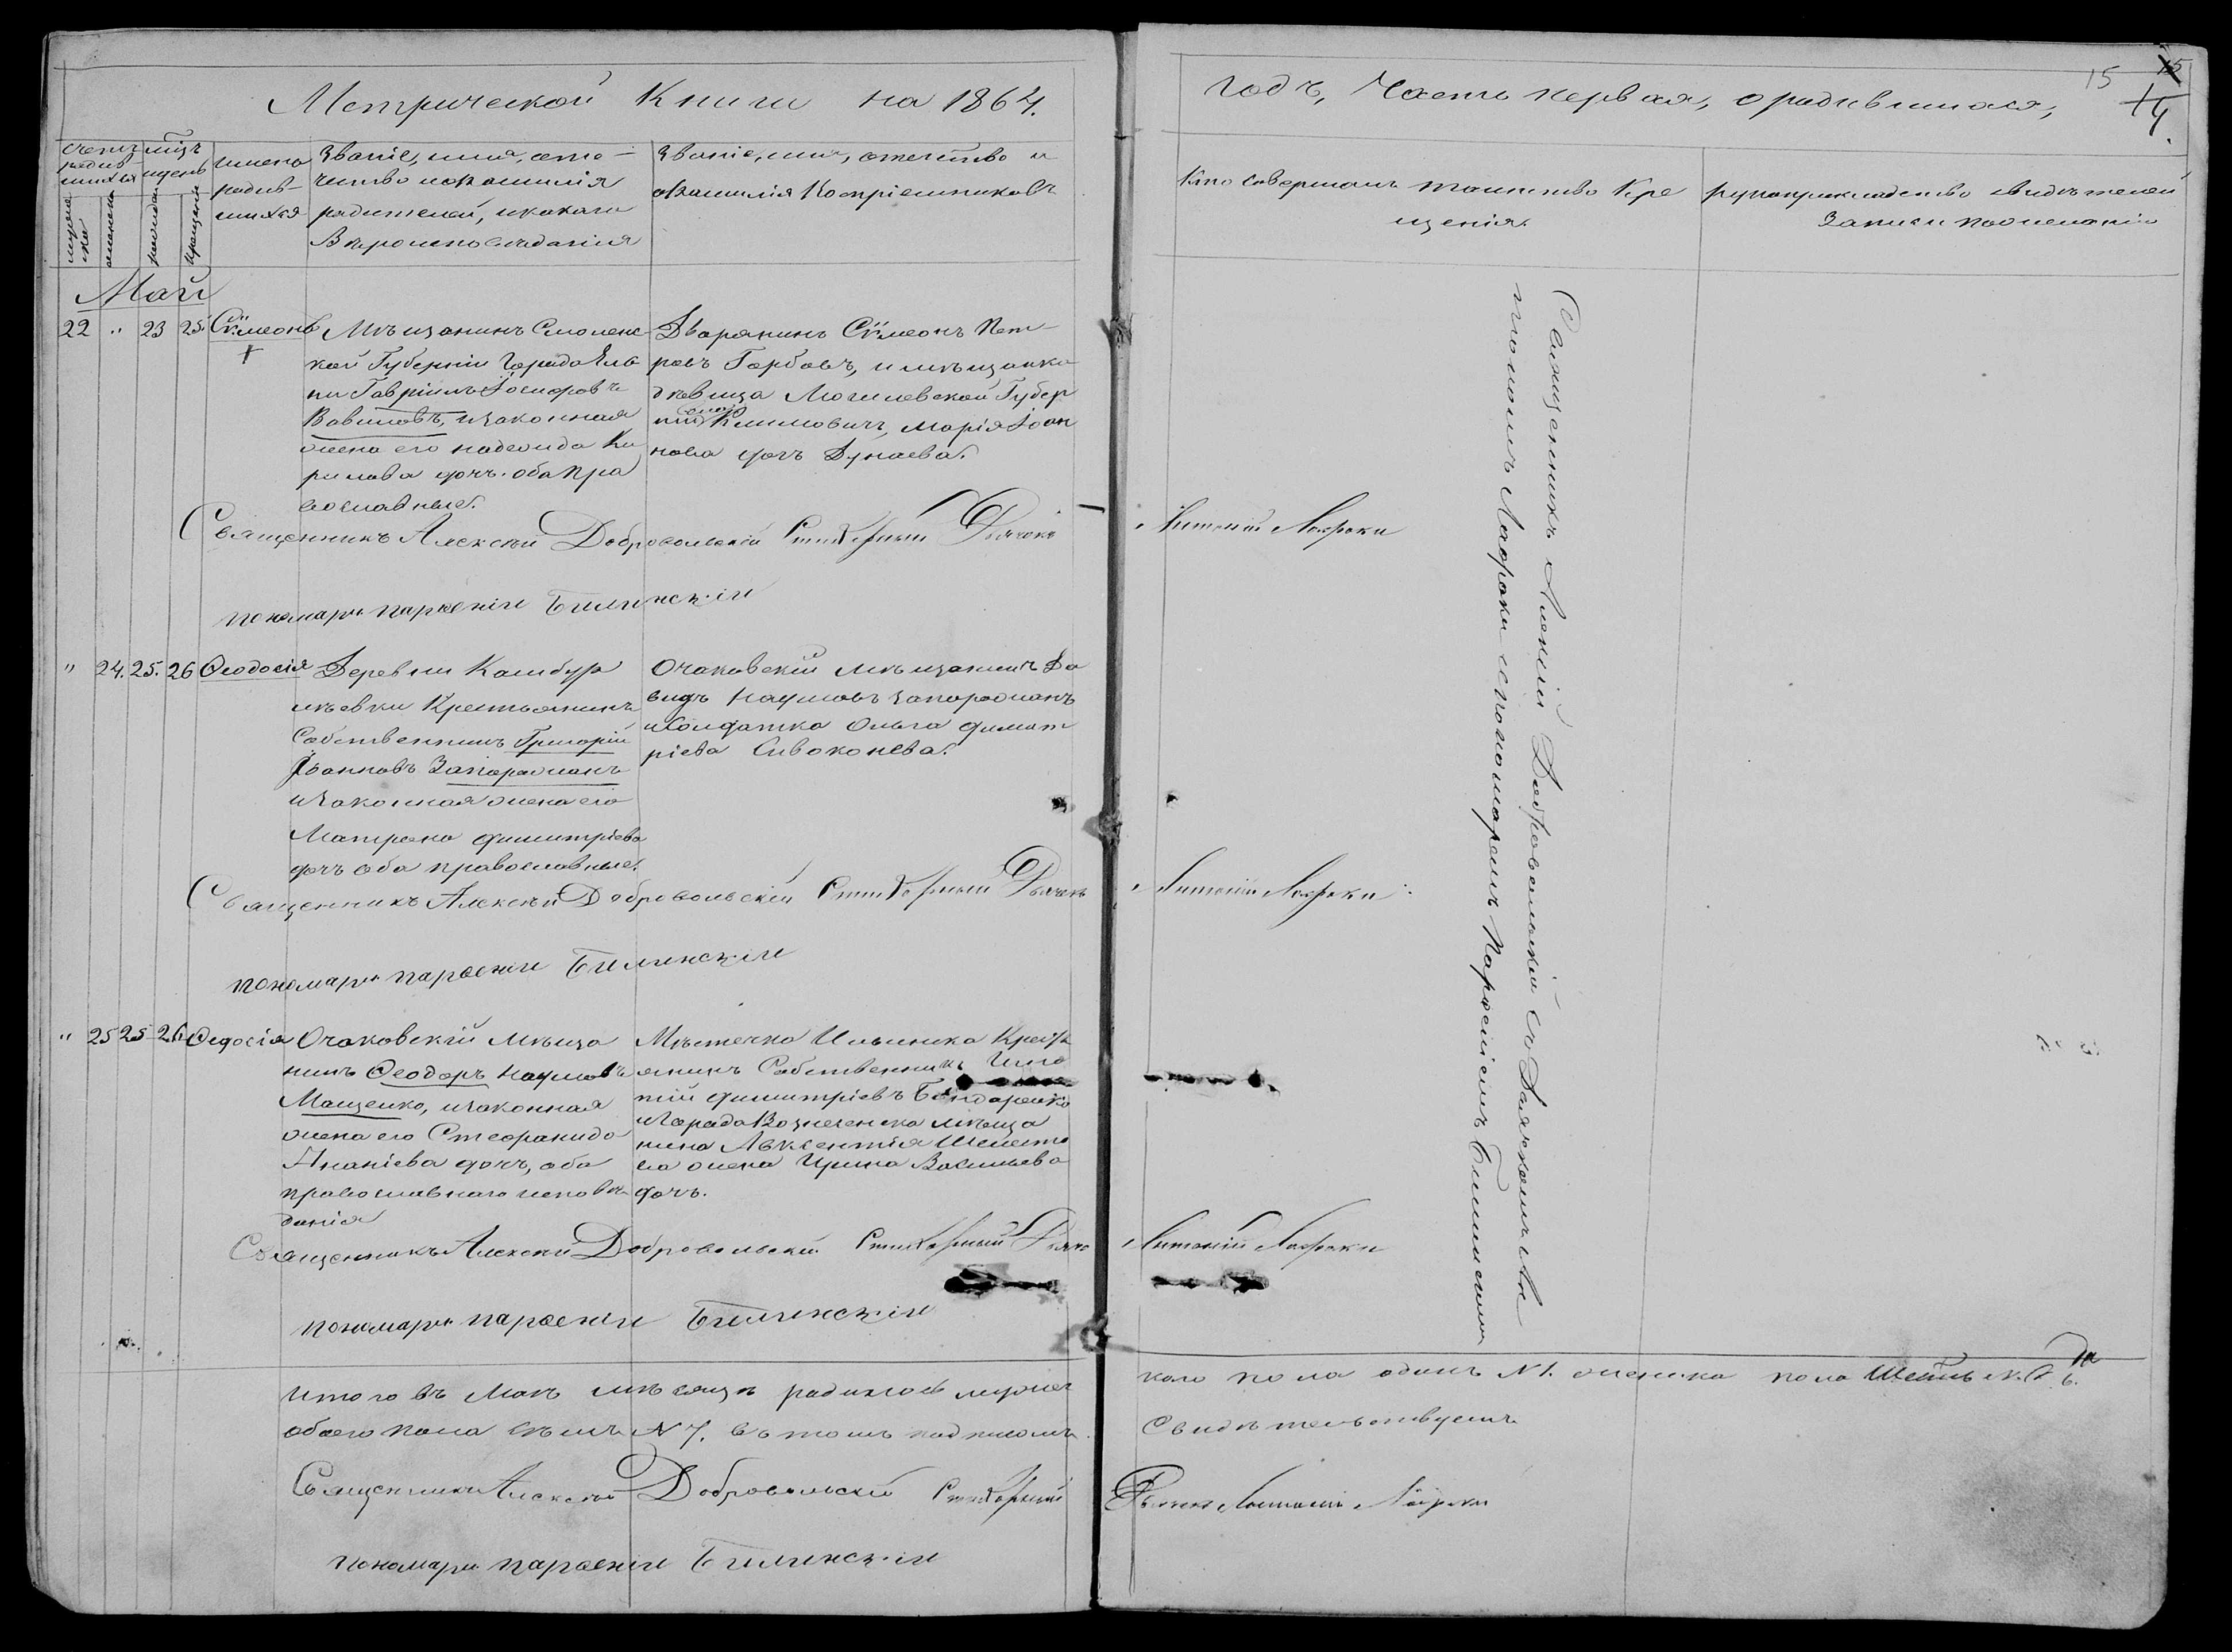 Метрической Книги на 1864.
годъ, Часть первая, о родившихся,
15
15
14.
Счетъ родив-шихся
мужеска
женска
Мѣсяцъ и день
рожденія
крещенія
Имена
родив-
шихся
Званіе, имя, отче-
чество и фамилія
родителей, и какого
Вѣроисповѣданія
Званіе, имя, отчество и
фамилія Воспріемниковъ
Кто совершалъ таинство Кре
щенія.
рукоприкладство свидѣтелей
Записи по желанію
Май
22 " 23 25. Сѵмеонъ
Мѣщанинъ Смоленс-
кой Губерніи Города Ель
ни Гавріилъ Іосифовъ
Вавиловъ, и законная
жена его Надежда Ки
рилова дочь. оба пра
вославные.
Дворянинъ Сѵмеонъ Пет-
ровъ Горбовъ, и мѣщанка
дѣвица Могилевской Губер
ніи Климовичь, Марія Іоан
нова дочь Дунаева.
Священникъ Алексѣй Добровольскій Стихарный Дьячокъ Антоній Лафоки
пономарь парѳеній Билинскій
" 24. 25. 26 Ѳеодосія
Деревни Камбур
лѣевки Крестьянинъ
Собственникъ Григорій
Іоанновъ Запорожанъ
и законная жена его
Матрена Димитріева
дочь оба православные.
Очаковскій мѣщанинъ Да
видъ Наумовъ Запорожанъ
и Солдатка Ольга Димит
ріева Сивоконева.
Священникъ Алексѣй Добровольскій Стихарный Дьячокъ Антоній Лафоки
пономарь парѳеній Билинскій
" 25 25 26 Ѳедосія
Очаковскій мѣща
нинъ Ѳеодоръ Наумовъ
Мащенко, и законная
жена его Стефанида
Ананіева дочь, оба
православнаго исповѣ
данія
Мѣстечка Ильинка Крест
янинъ Собственникъ Игна
тій Димитріевъ Бондаренко
и Города Вознесенска мѣща
нина Авксентія Шелесто
ва жена Ирина Васильева
дочь.
Священникъ Алексѣй Добровольскій Стихарный Дьячо Антоній Лафоки
пономарь парѳеній Билинскій
Священникъ Алексѣй Добровольскій съ Дьячкомъ Ан
тоніемъ Лафоки и пономаремъ Парѳеніемъ Билинскимъ
Итого въ Маѣ мѣсяцѣ родилось мужес
каго пола одинъ N 1. женска пола Шесть N. 6.
обоего пола семь N 7. въ томъ подписомъ
Свидѣтельствуемъ
Священникъ Алексѣй Добровольскій Стихарный
Дьячокъ Антоній Лафоки
пономарь парѳеній Билинскій